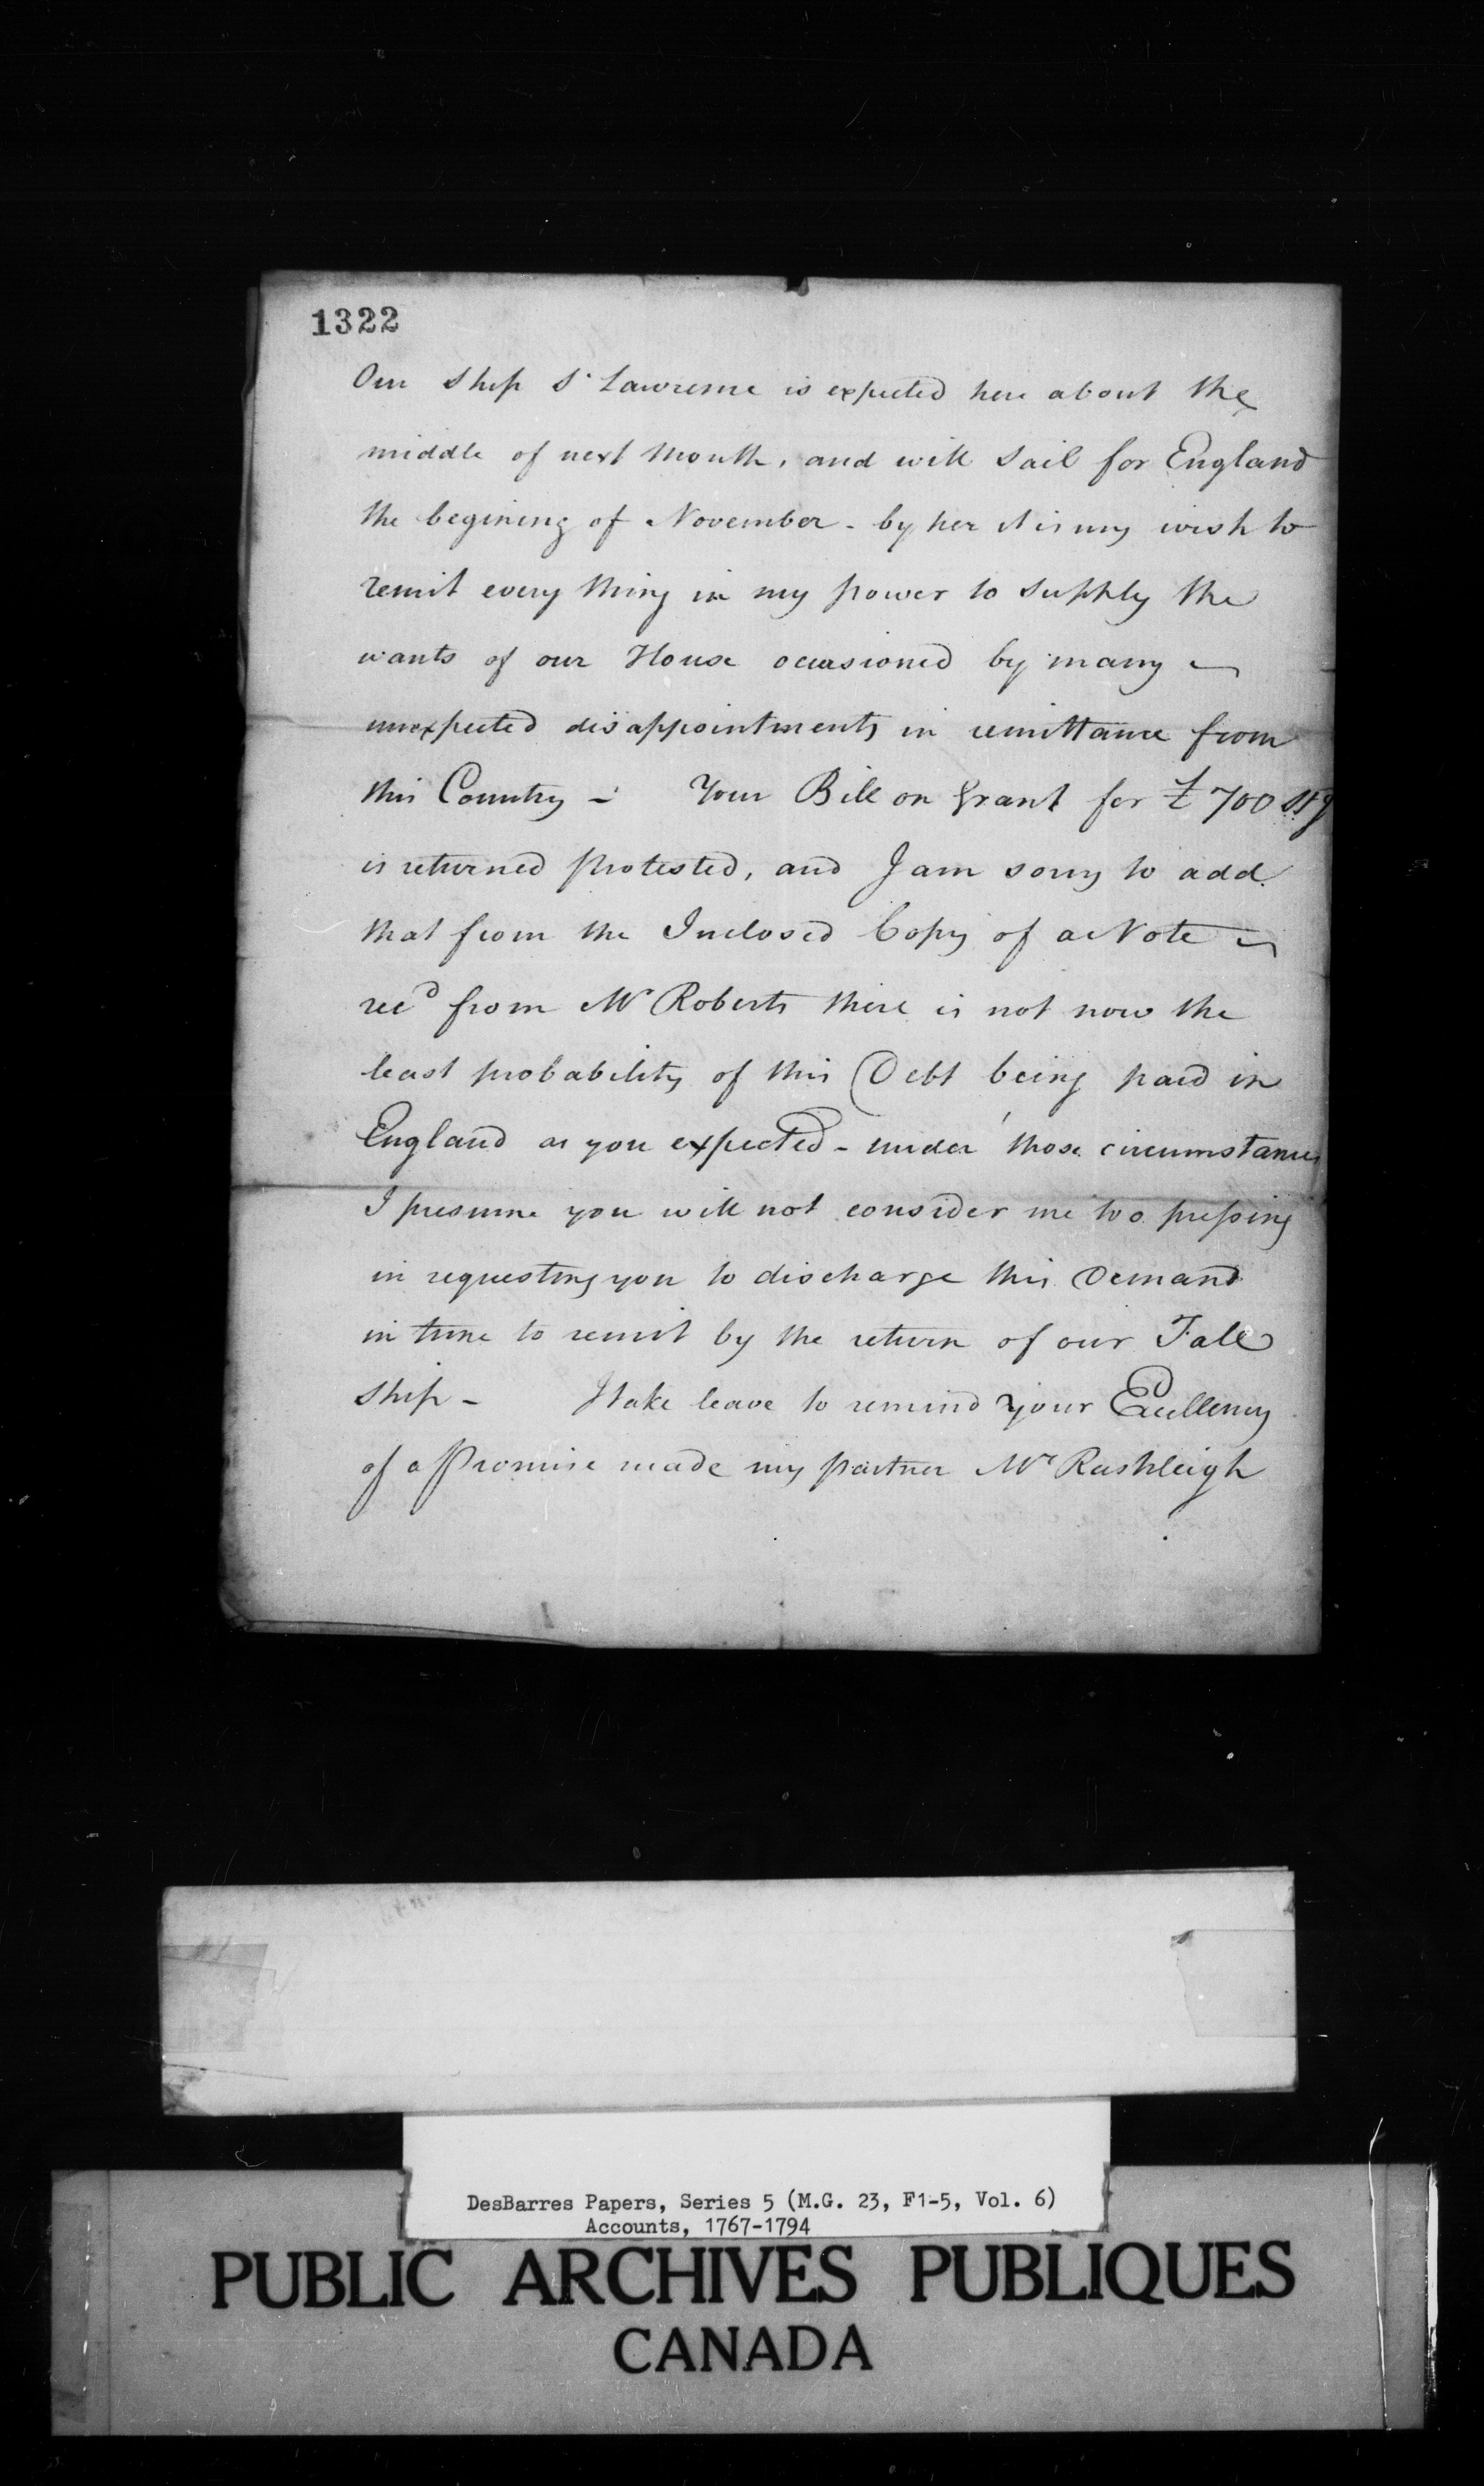 1322
Our Ship St Lawrence is expected here about the
middle of next Month, and will Sail for England
the begining of November - by her it is my wish to
remit every thing in my power to Supply the
wants of our House occasioned by many
unexpected disappointments in remittance from
this Country - Your Bill on Grant for £700 Stg
is returned protested, and I am sorry to add
that from the Inclosed Copy of a Note
recd from Mr Roberts there is not now the
least probability of this Debt being paid in
England as you expected - under those circumstances
I presume you will not consider me too pressing
in requesting you to discharge this Demand
in time to remit by the return of our Fall
Ship - I take leave to remind Your Excellency
of a Promise made my partner Mr Rashleigh
DesBarres Papers, Series 5 (M.G. 23, F1-5, Vol. 6)
Accounts, 1767-1794
PUBLIC ARCHIVES PUBLIQUES
CANADA